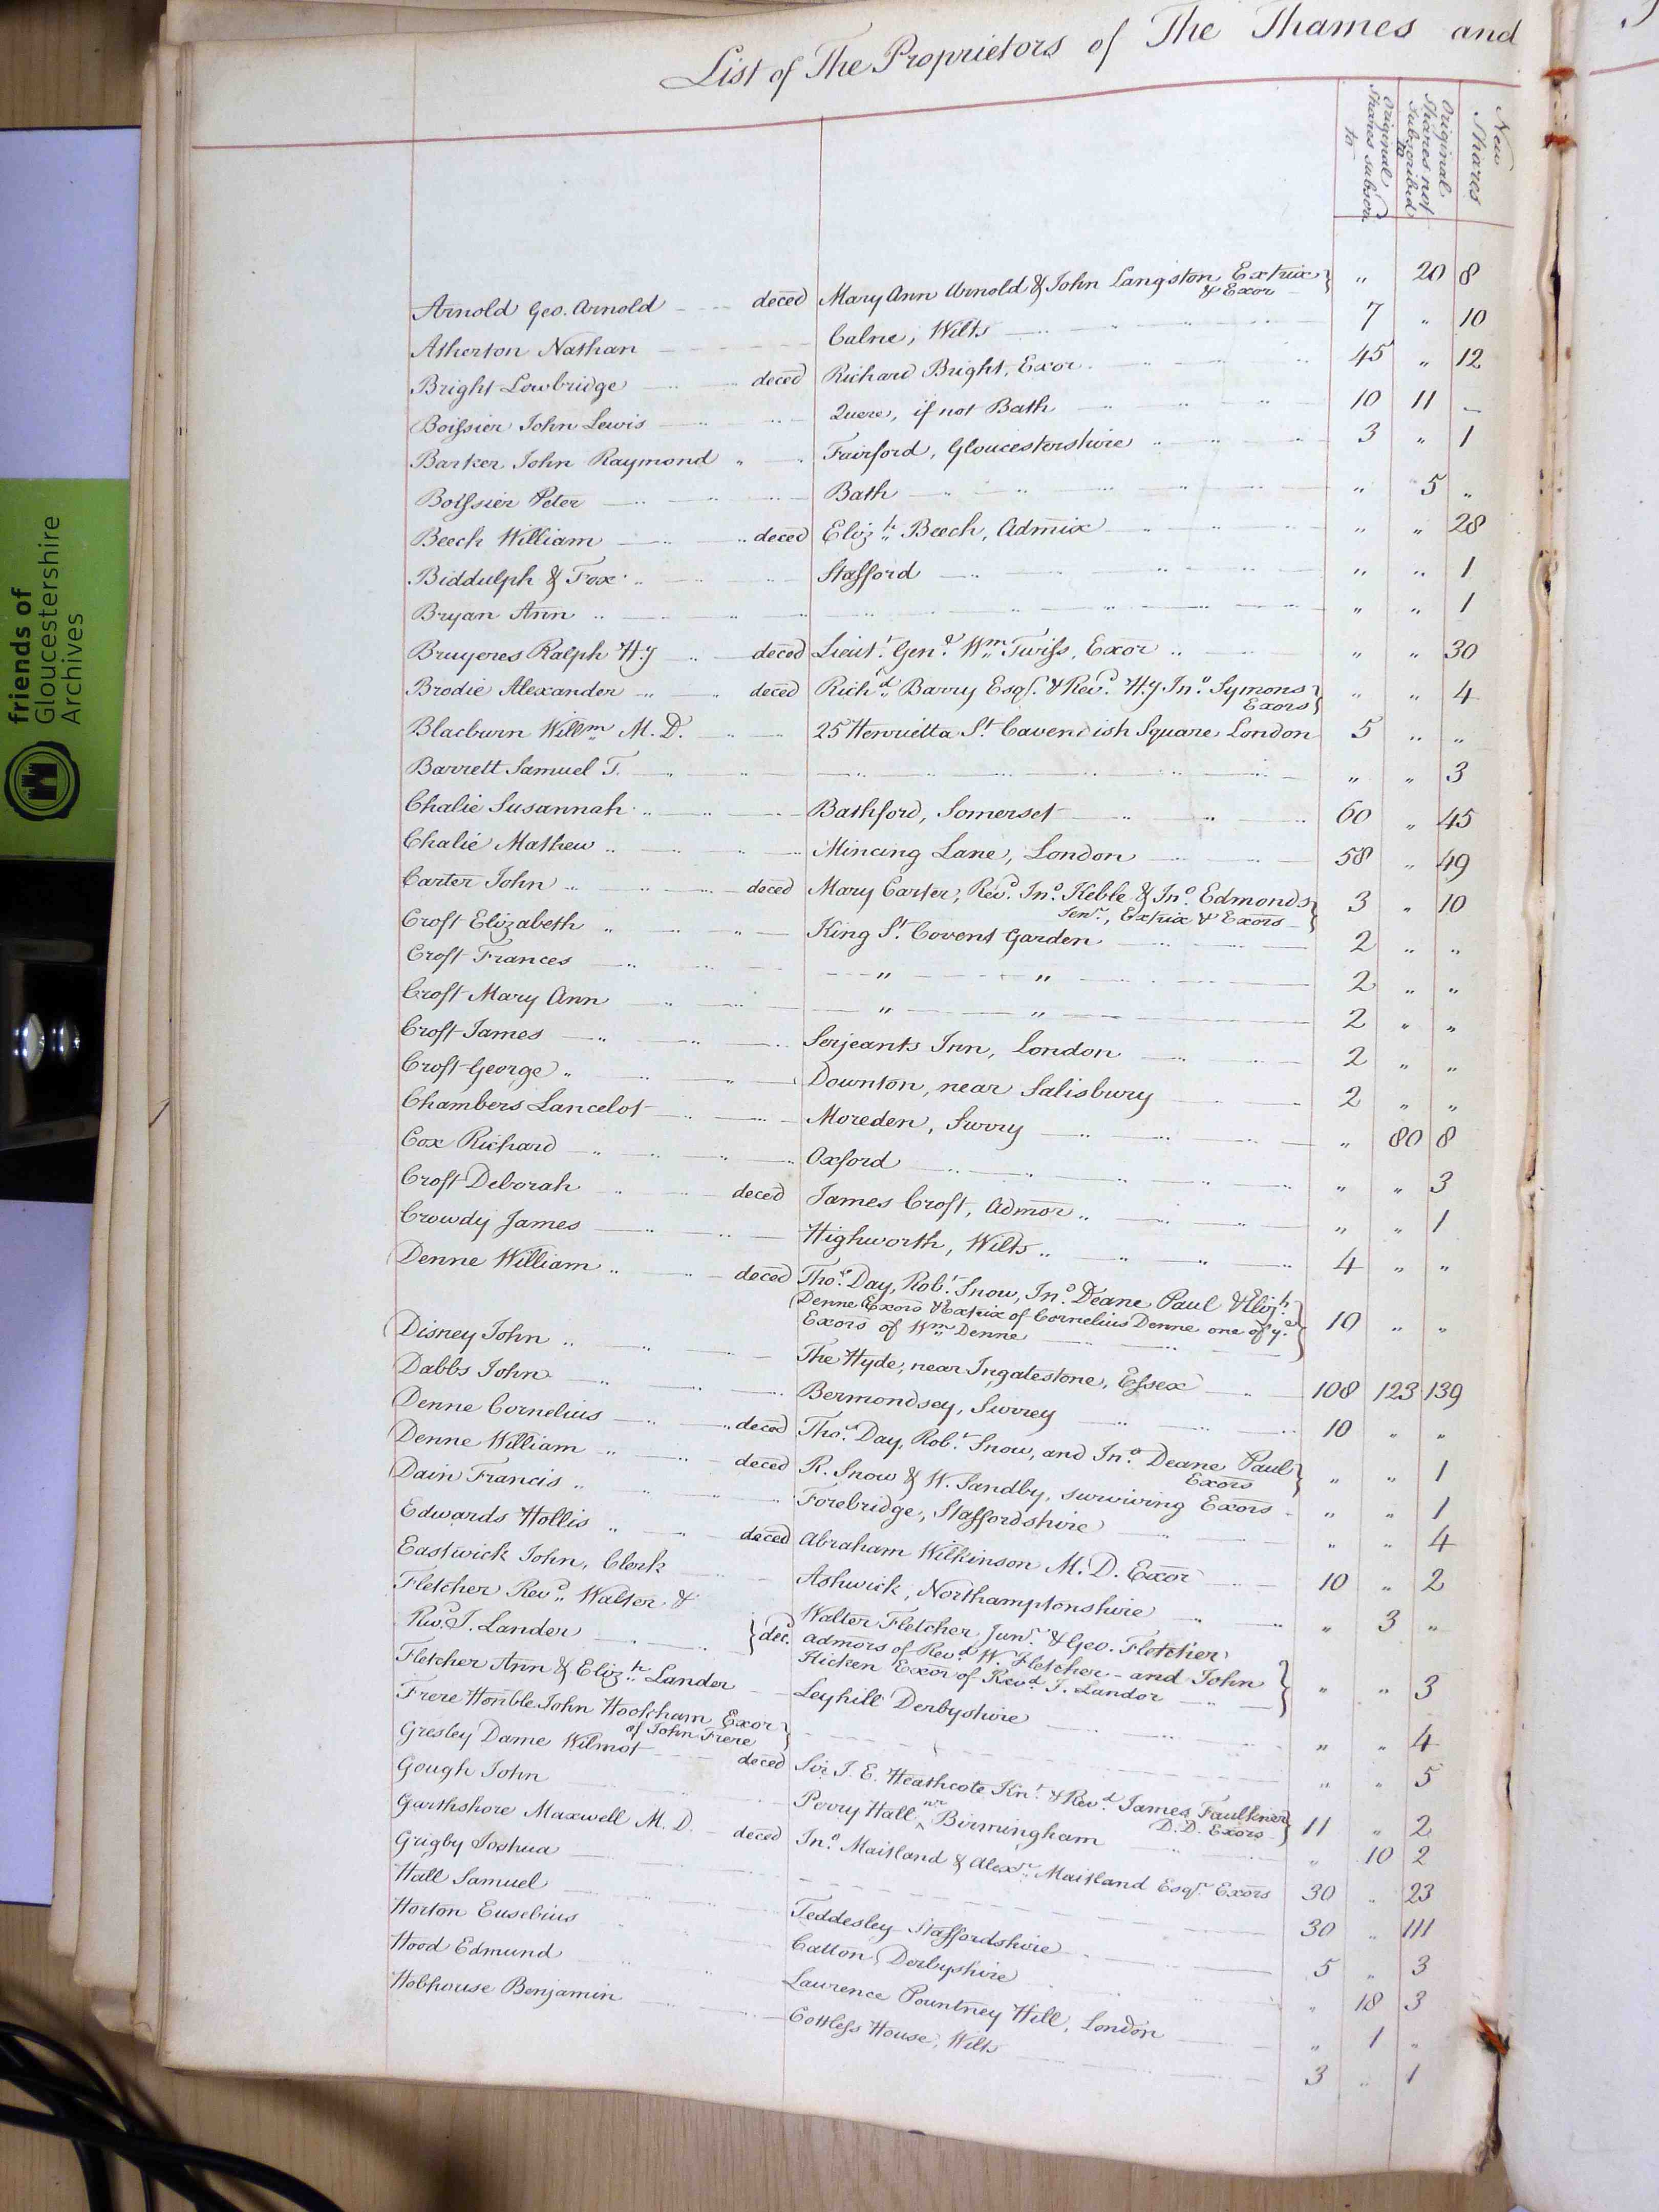 List of The Proprietors of The Thames and
Original Shares subscrd. to
Original Shares not Subscribed to
New Shares
Arnold Geo. Arnold deced Mary Ann Arnold & John Langston, Extrix & Exor } " 20 8
Atherton Nathan Calne, Wilts 7 " 10
Bright Lowbridge deced Richard Bright, Exor 45 " 12
Boissier John Lewis Quere, if not Bath 10 11 —
Barker John Raymond Fairford, Gloucestershire 3 " 1
Boissier Peter Bath " 5 "
Beech William deced Elizh. Beech, Admix " " 28
Biddulph & Fox Stafford " " 1
Bryan Ann " " 1
Bruyeres Ralph Hy deced Lieut. Genl. Wm. Twiss, Exor " " 30
Brodie Alexander deced Richd. Barry Esqr. & Revd. Hy Jno. Symons Exors } " " 4
Blacburn Willm M.D. 25 Henrietta St. Cavendish Square London 5 " "
Barrett Samuel T. " " 3
Chalie Susannah Bathford, Somerset 60 " 45
Chalie Mathew Mincing Lane, London 58 " 49
Carter John deced Mary Carter, Revd. Jno. Keble & Jno. Edmonds Senr., Extrix & Exors } 3 " 10
Croft Elizabeth King St. Covent Garden 2 " "
Croft Frances " " 2 " "
Croft Mary Ann " " 2 " "
Croft James Serjeants Inn, London 2 " "
Croft George Downton, near Salisbury 2 " "
Chambers Lancelot Moreden, Surry " 80 8
Cox Richard Oxford " " 3
Croft Deborah deced James Croft, Admor " " 1
Crowdy James Highworth, Wilts 4 " "
Denne William deced Thos. Day, Robt. Snow, Jno. Deane Paul & Elizh.
Denne Exors & Extrix of Cornelius Denne one of ye.
Exors of Wm. Denne } 10 " "
Disney John The Hyde, near Ingatestone, Essex 108 123 139
Dabbs John Bermondsey, Surrey 10 " "
Denne Cornelius deced Thos. Day, Robt. Snow, and Jno. Deane Paul Exors } " " 1
Denne William deced R. Snow & W. Sandby, surviving Exors " " 1
Dain Francis Forebridge, Staffordshire " " 4
Edwards Hollis deced Abraham Wilkinson M.D. Exor 10 " 2
Eastwick John, Clerk Ashwick, Northamptonshire " 3 "
Fletcher Revd. Walter & Walter Fletcher Junr. & Geo. Fletcher
Revd. J. Lander } dec. Admors of Revd W. Fletcher - and John
Hicken Exor of Revd. J. Landor } " " 3
Fletcher Ann & Elizh. Lander Leyhill Derbyshire " " 4
Frere Honble John Hookham Exor of John Frere } " " 5
Gresley Dame Wilmot deced Sir J. E. Heathcote Knt. & Revd. James Faulkner D.D. Exors } 11 " 2
Gough John Perry Hall nr Birmingham " 10 2
Garthshore Maxwell M.D. deced Jno. Maitland & Alexr. Maitland Esqr. Exors 30 " 23
Grigby Joshua 30 " 111
Hall Samuel Teddesley Staffordshire 5 " 3
Horton Eusebius Catton, Derbyshire " 18 3
Hood Edmund Laurence Pountney Hill, London " 1 "
Hobhouse Benjamin Cottless House, Wilts 3 " 1
friends of
Gloucestershire
Archives